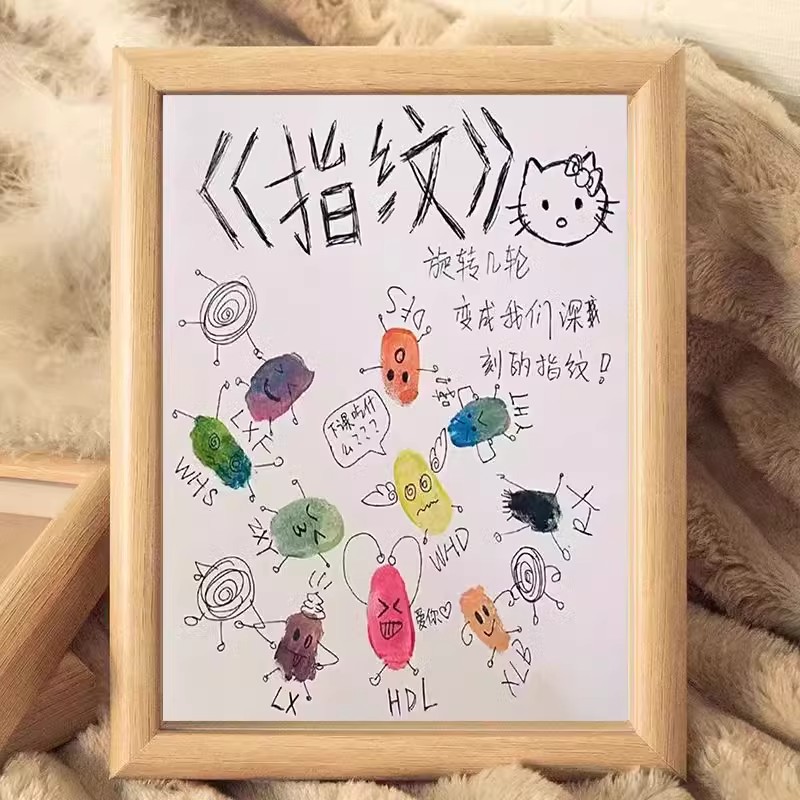 《指纹》
旋转几轮
变成我们深
刻的指纹!
DFS
LXF
下课吃什
么???
YHT
WHS
ZXY
WHD
RX
爱你♡
XLB
LX
HDL